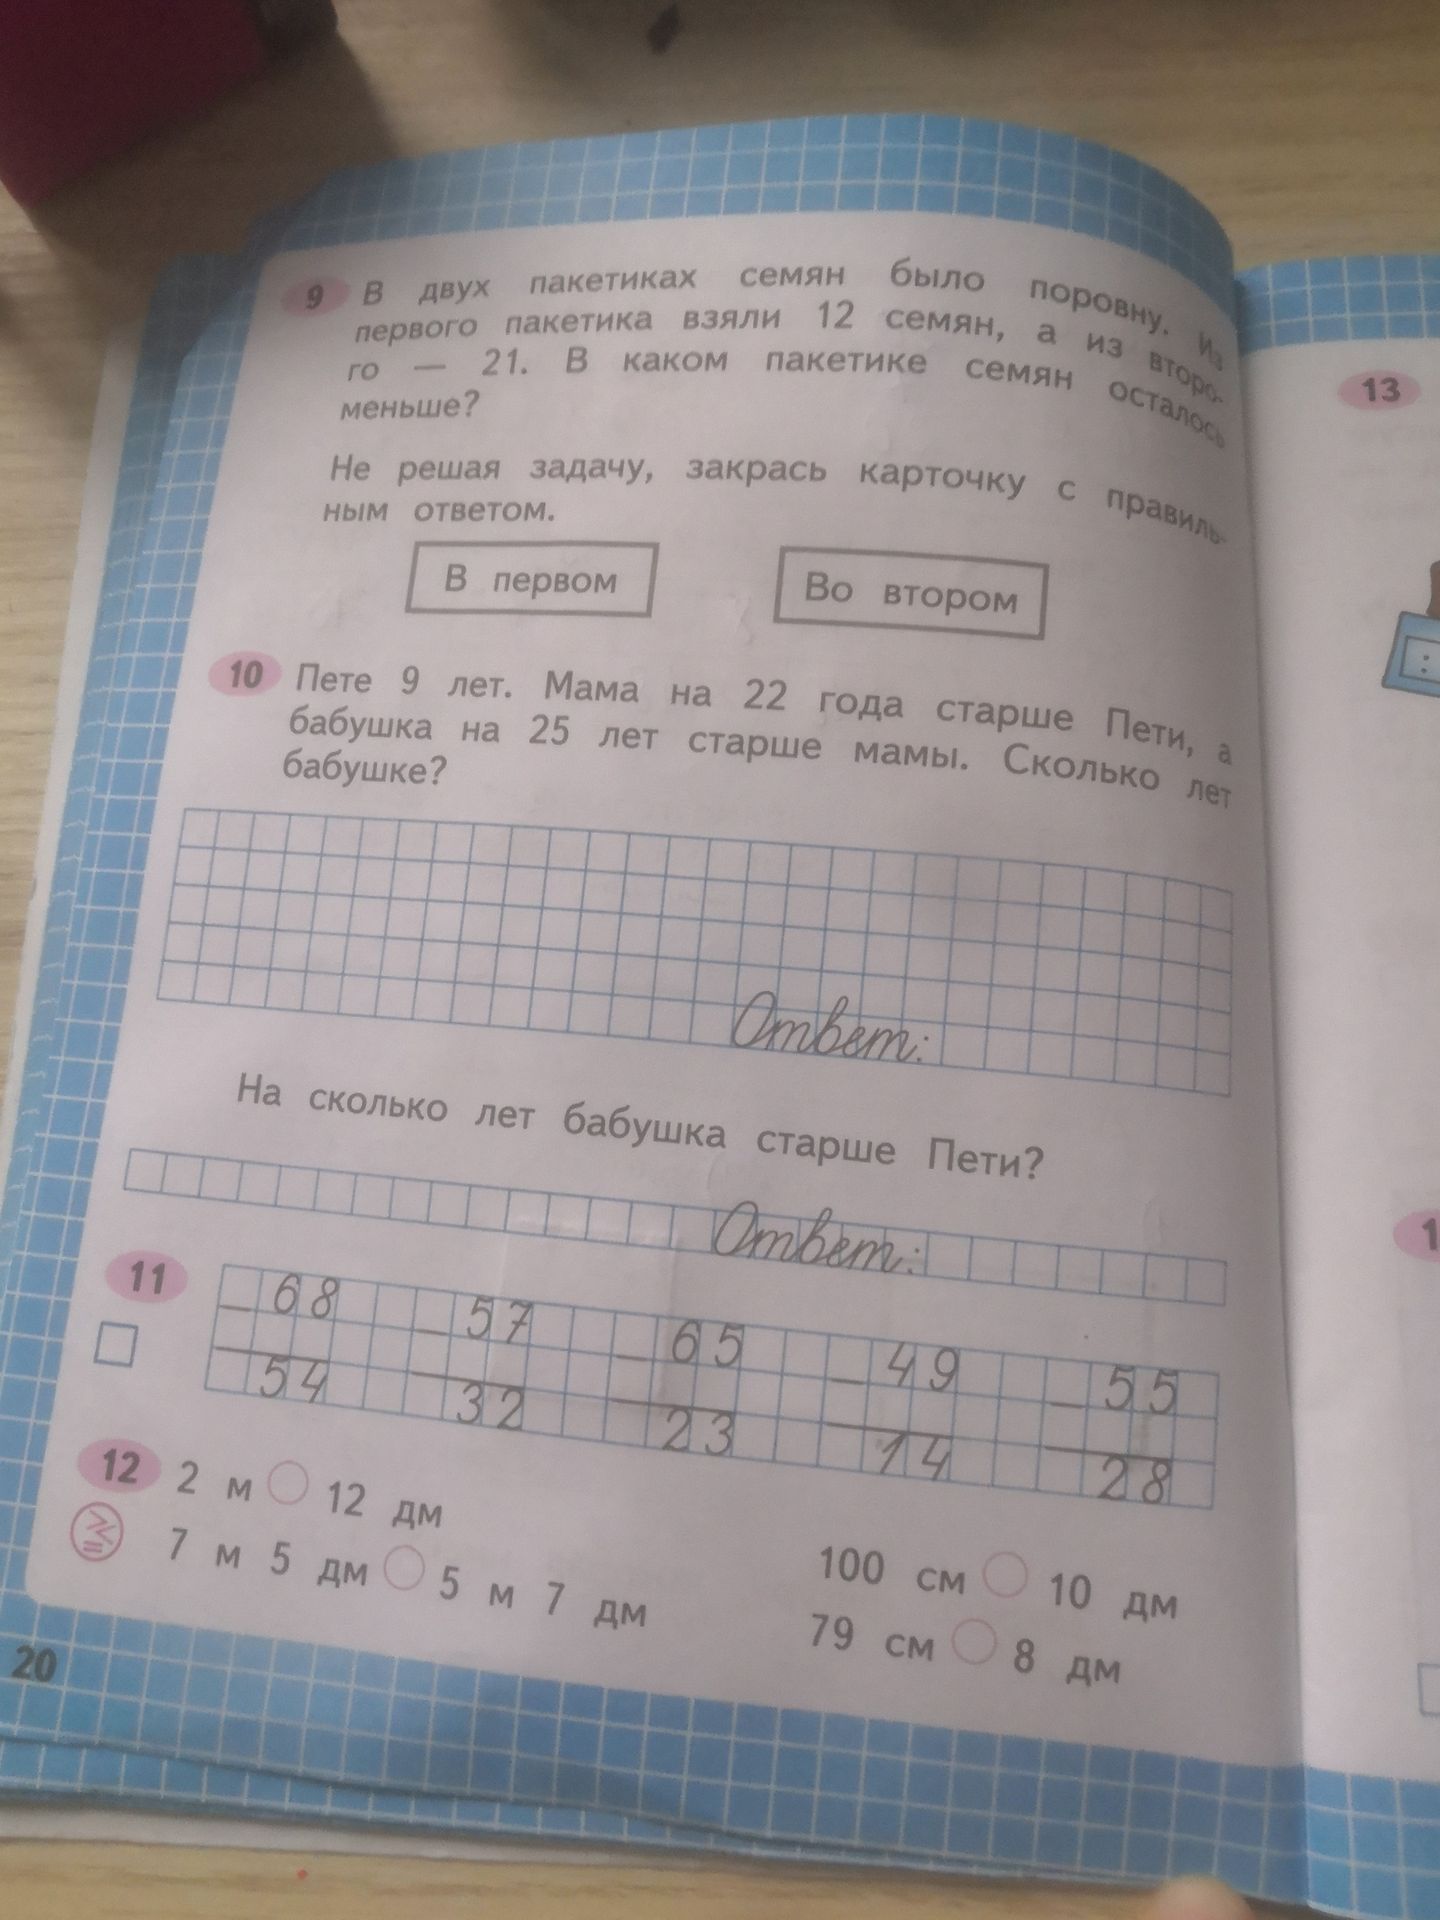 9 В двух пакетиках семян было поровну. Из
первого пакетика взяли 12 семян, а из второ-
го — 21. В каком пакетике семян осталось
меньше?
Не решая задачу, закрась карточку с правиль-
ным ответом.
В первом Во втором
10 Пете 9 лет. Мама на 22 года старше Пети, а
бабушка на 25 лет старше мамы. Сколько лет
бабушке?
Ответ:
На сколько лет бабушка старше Пети?
Ответ:
11 – 68 – 57 – 65 – 49 – 55
54 32 23 14 28
12 2 м 12 дм 100 см 10 дм
7 м 5 дм 5 м 7 дм 79 см 8 дм
20
13